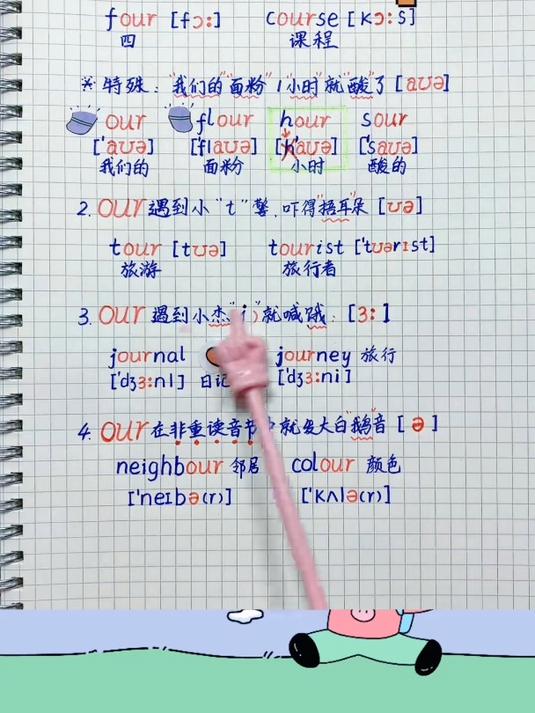 four [fɔ:] course [kɔ:s]
四 课程
※ 特殊: "我们的""面粉"1"小时"就"酸"了 [aʊə]
our flour hour sour
['aʊə] ['flaʊə] ['h'aʊə] ['saʊə]
我们的 面粉 小时 酸的
2. our 遇到小"t"警,吓得捂耳朵 [ʊə]
tour [tʊə] tourist ['tʊərɪst]
旅游 旅行者
3. our 遇到小杰"j"就喊饿: [ɜ:]
journal journey 旅行
['dʒɜ:nl] 日记 ['dʒɜ:ni]
4. our 在非重读音节中就发大白"鹅"音 [ə]
neighbour 邻居 colour 颜色
['neɪbə(r)] ['kʌlə(r)]